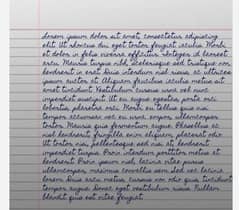 Lorem ipsum dolor sit amet, consectetur adipiscing
elit. Ut rhoncus dui eget tortor feugiat iaculis. Morbi
et dolor in felis viverra efficitur. Integer id laoreet
arcu. Mauris turpis nibh, scelerisque sed tristique non,
hendrerit in erat. Duis interdum nisl risus, ac ultrices
ipsum auctor at. Aliquam faucibus iaculis metus sit
amet tincidunt. Vestibulum cursus urna vel nunc
imperdiet suscipit. Ut eu augue egestas, porta mi
lobortis, pharetra mi. Morbi eu tellus quis nisi
tempor accumsan vel eu urna.
tortor. Mauris quis fermentum augue. Phasellus ac
nisl hendrerit, fringilla enim aliquam, placerat odio.
Ut tortor nisi, pellentesque sed nisi at, hendrerit
imperdiet turpis. Proin interdum porttitor metus et
hendrerit. Proin ipsum nisl, lacinia vitae purus
ullamcorper, maximus convallis sem. Sed vel lacinia
lorem. Duis arcu metus, cursus non odio quis, tincidunt
tempor augue. Donec eget vestibulum risus. Nullam
blandit quis est vitae feugiat.